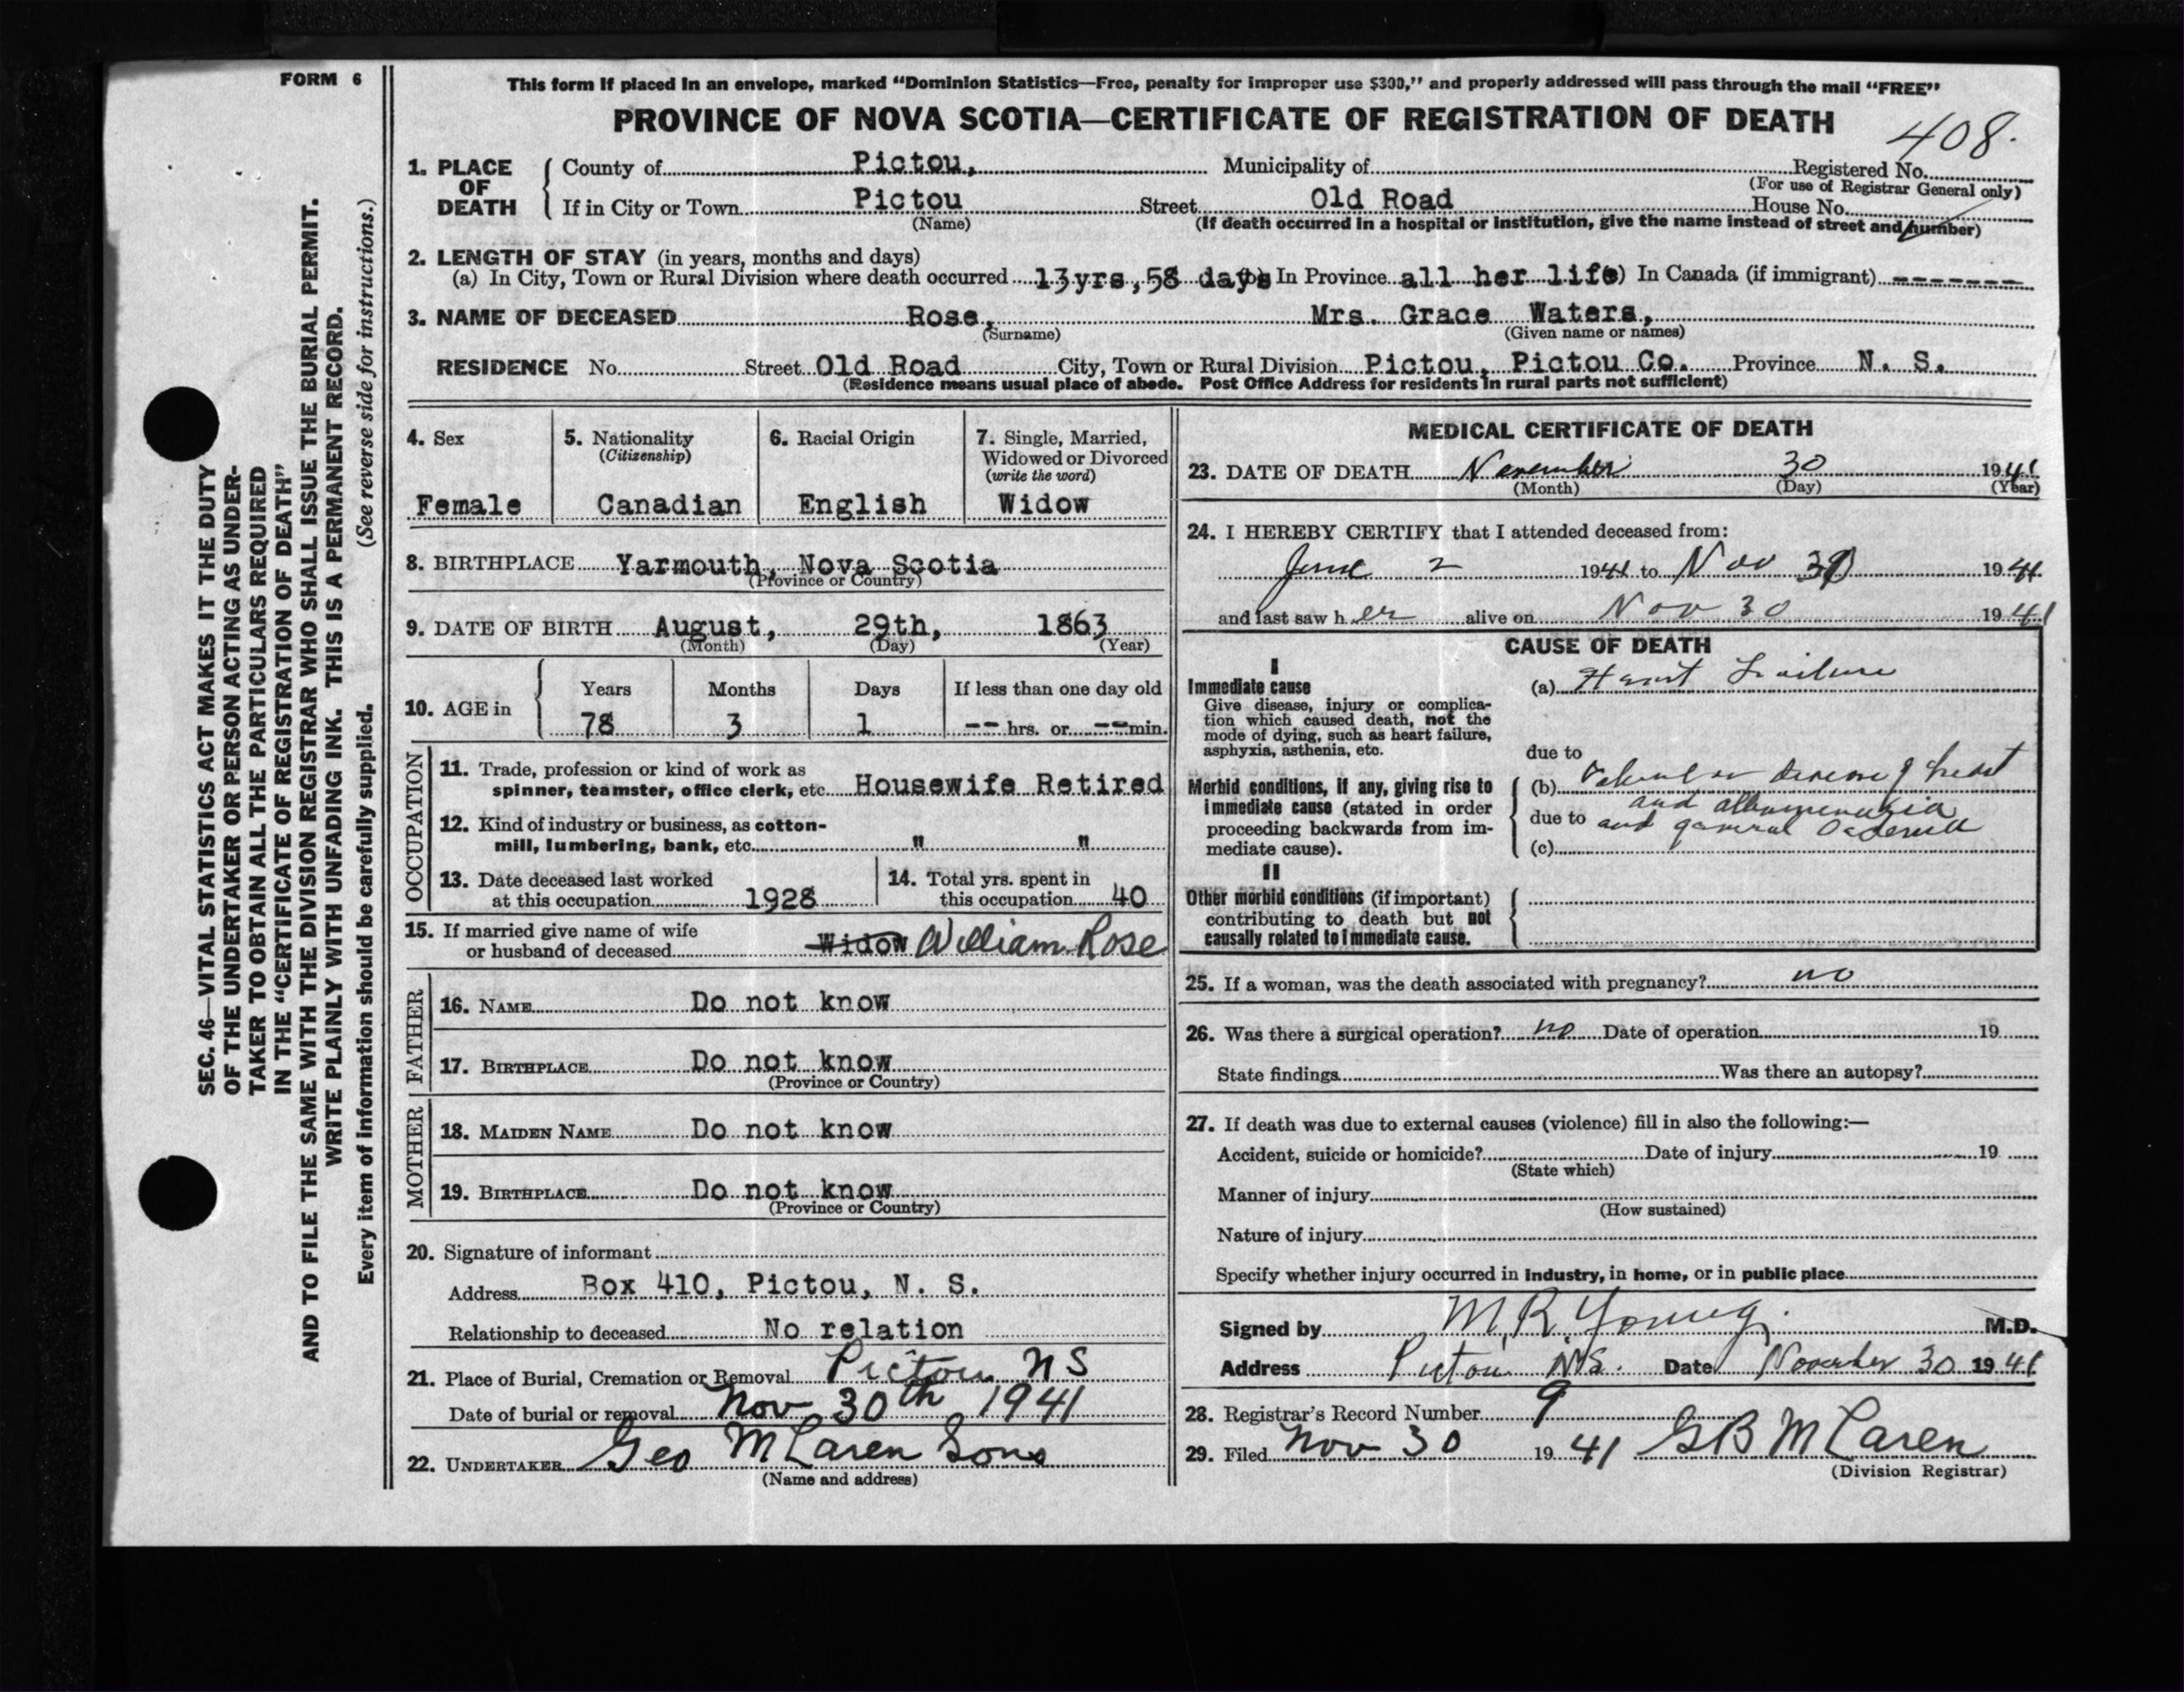 FORM 6
SEC. 46—VITAL STATISTICS ACT MAKES IT THE DUTY
OF THE UNDERTAKER OR PERSON ACTING AS UNDER-
TAKER TO OBTAIN ALL THE PARTICULARS REQUIRED
IN THE "CERTIFICATE OF REGISTRATION OF DEATH"
AND TO FILE THE SAME WITH THE DIVISION REGISTRAR WHO SHALL ISSUE THE BURIAL PERMIT.
WRITE PLAINLY WITH UNFADING INK. THIS IS A PERMANENT RECORD.
Every item of information should be carefully supplied. (See reverse side for instructions.)
This form if placed in an envelope, marked "Dominion Statistics—Free, penalty for improper use $300," and properly addressed will pass through the mail "FREE"
PROVINCE OF NOVA SCOTIA—CERTIFICATE OF REGISTRATION OF DEATH
408.
1. PLACE OF DEATH
County of Pictou, Municipality of Registered No.
(For use of Registrar General only)
If in City or Town Pictou Street Old Road House No.
(Name) (If death occurred in a hospital or institution, give the name instead of street and number)
2. LENGTH OF STAY (in years, months and days)
(a) In City, Town or Rural Division where death occurred 13yrs, 58 days In Province all her life) In Canada (if immigrant) -------
3. NAME OF DECEASED Rose, Mrs. Grace Waters,
(Surname) (Given name or names)
RESIDENCE No. Street Old Road City, Town or Rural Division Pictou, Pictou Co. Province N. S.
(Residence means usual place of abode. Post Office Address for residents in rural parts not sufficient)
4. Sex
Female
5. Nationality
(Citizenship)
Canadian
6. Racial Origin
English
7. Single, Married,
Widowed or Divorced
(write the word)
Widow
8. BIRTHPLACE Yarmouth, Nova Scotia
(Province or Country)
9. DATE OF BIRTH August, 29th, 1863
(Month) (Day) (Year)
10. AGE in
Years Months Days If less than one day old
78 3 1 -- hrs. or -- min.
OCCUPATION
11. Trade, profession or kind of work as
spinner, teamster, office clerk, etc. Housewife Retired
12. Kind of industry or business, as cotton-
mill, lumbering, bank, etc. " "
13. Date deceased last worked
at this occupation 1928
14. Total yrs. spent in
this occupation 40
15. If married give name of wife
or husband of deceased Widow William Rose
FATHER
16. NAME Do not know
17. BIRTHPLACE Do not know
(Province or Country)
MOTHER
18. MAIDEN NAME Do not know
19. BIRTHPLACE Do not know
(Province or Country)
20. Signature of informant
Address Box 410, Pictou, N. S.
Relationship to deceased No relation
21. Place of Burial, Cremation or Removal Pictou NS
Date of burial or removal Nov 30th 1941
22. UNDERTAKER Geo McLaren Sons
(Name and address)
MEDICAL CERTIFICATE OF DEATH
23. DATE OF DEATH November 30 1941
(Month) (Day) (Year)
24. I HEREBY CERTIFY that I attended deceased from:
June 2 1941 to Nov 30 1941
and last saw her alive on Nov 30 1941
CAUSE OF DEATH
I
Immediate cause
Give disease, injury or complica-
tion which caused death, not the
mode of dying, such as heart failure,
asphyxia, asthenia, etc.
(a) Heart Failure
due to
Morbid conditions, if any, giving rise to
immediate cause (stated in order
proceeding backwards from im-
mediate cause).
(b) Valvular disease of heart
and albumenuria
due to and general
(c)
II
Other morbid conditions (if important)
contributing to death but not
causally related to immediate cause.
25. If a woman, was the death associated with pregnancy? no
26. Was there a surgical operation? no Date of operation 19
State findings Was there an autopsy?
27. If death was due to external causes (violence) fill in also the following:—
Accident, suicide or homicide? Date of injury 19
(State which)
Manner of injury
(How sustained)
Nature of injury
Specify whether injury occurred in industry, in home, or in public place
Signed by M. R. Young. M.D.
Address Pictou N.S. Date November 30 1941
28. Registrar's Record Number 9
29. Filed Nov 30 1941 GB McLaren
(Division Registrar)